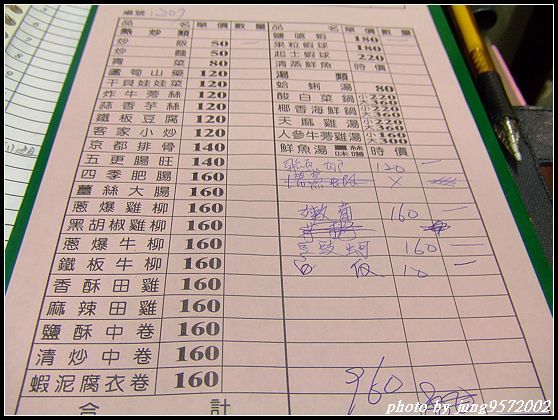 桌號:1207
品名 單價 數量
熱炒類
炒飯 50
炒麵 50
青菜 80
蘆筍山藥 120
干貝娃娃菜 120
炸牛蒡絲 120
蒜香芋絲 120
鐵板豆腐 120
客家小炒 120
京都排骨 140
五更腸旺 140
四季肥腸 160
薑絲大腸 160
蔥爆雞柳 160
黑胡椒雞柳 160
蔥爆牛柳 160
鐵板牛柳 160
香酥田雞 160
麻辣田雞 160
鹽酥中卷 160
清炒中卷 160
蝦泥腐衣卷 160
合計
品名 單價 數量
鹽嗆蝦 180
果粒蝦球 180
起士蝦球 220
清蒸鮮魚 時價
湯類
蛤蜊湯 80
酸白菜鍋 小220 大360
椰香海鮮鍋 小220 大360
天麻雞湯 小160 大300
人參牛蒡雞湯 小160 大300
鮮魚湯 薑絲 味噌 時價
120 一
160 一
160 一
白飯 10 一
960
photo by mng9572002